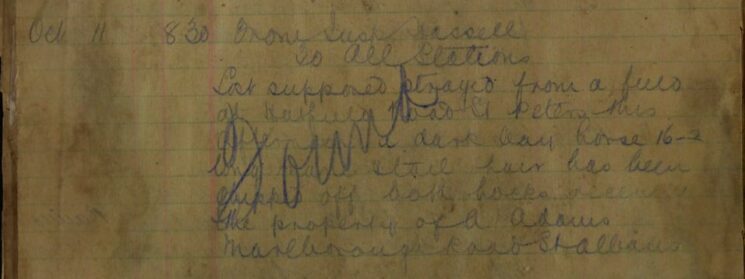 Oct 11 8.30 From Supt Hassell
To All Stations
Lost supposed strayed from a field
at Hatfield Road St Peters this
a dark bay horse 16-2
hair has been
clipped off both hocks
the property of A Adams
Marlborough Road St Albans
Found